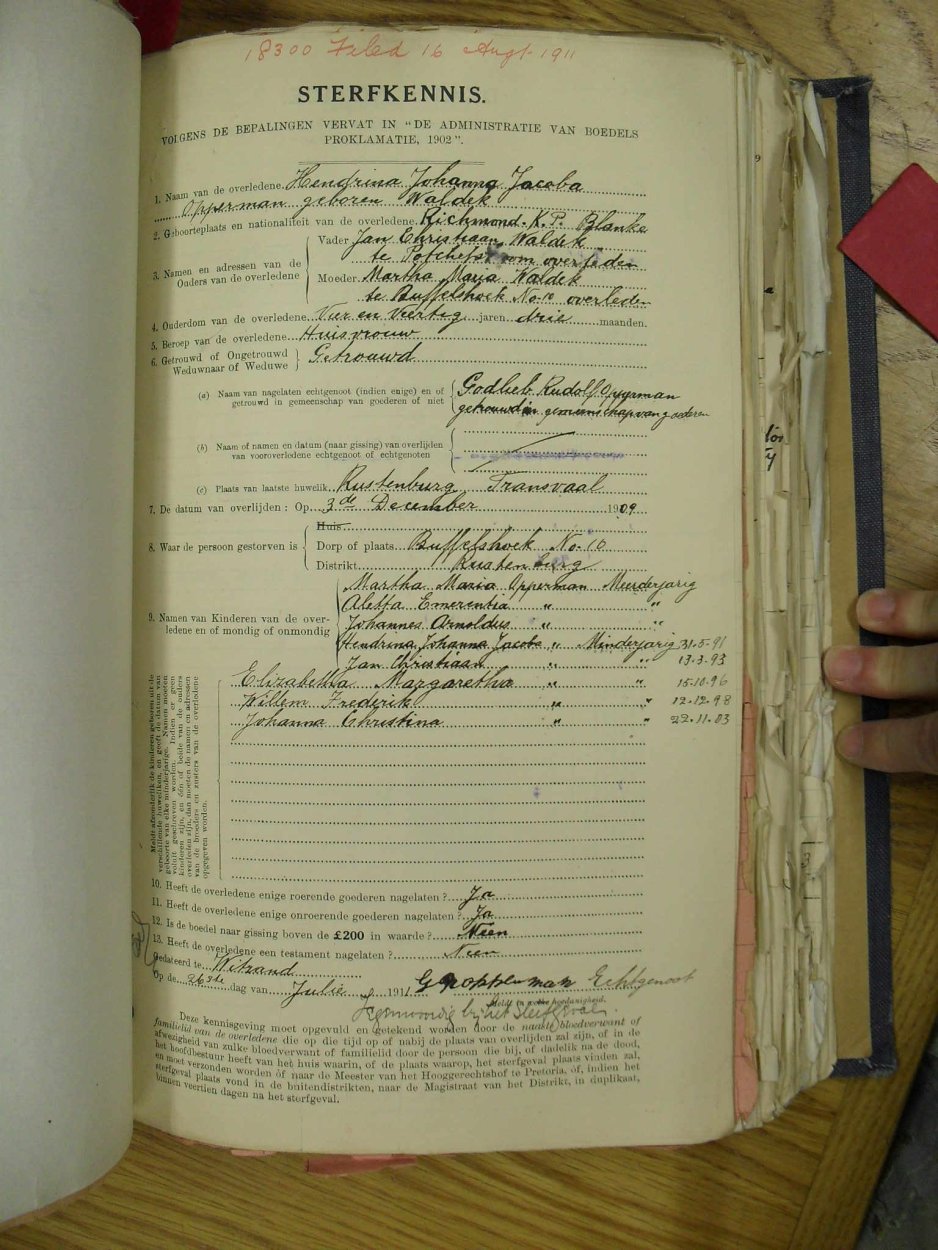 18300 Filed 16 Augt 1911
STERFKENNIS.
VOLGENS DE BEPALINGEN VERVAT IN "DE ADMINISTRATIE VAN BOEDELS
PROKLAMATIE, 1902".
1. Naam van de overledene Hendrina Johanna Jacoba
Opperman geboren Waldek
2. Geboorteplaats en nationaliteit van de overledene. Richmond. K.P. Blanke
3. Namen en adressen van de Ouders van de overledene
Vader Jan Christiaan Waldek
te Potchefstroom overleden
Moeder Martha Maria Waldek
te Buffelshoek No 10 overleden
4. Ouderdom van de overledene Vier en Viertig jaren drie maanden.
5. Beroep van de overledene Huisvrouw
6. Getrouwd of Ongetrouwd
Weduwnaar of Weduwe
Getrouwd
(a) Naam van nagelaten echtgenoot (indien enige) en of
getrouwd in gemeenschap van goederen of niet
Godlieb Rudolf Opperman
getrouwd in gemeenschap van goederen
(b) Naam of namen en datum (naar gissing) van overlijden
van vooroverledene echtgenoot of echtgenoten
(c) Plaats van laatste huwelik Rustenburg Transvaal
7. De datum van overlijden : Op 3de December 1909
8. Waar de persoon gestorven is
Huis
Dorp of plaats Buffelshoek No 10
Distrikt Rustenburg
9. Namen van Kinderen van de overledene en of mondig of onmondig
Martha Maria Opperman Meerderjarig
Aletta Emerentia " "
Johannes Arnoldus " "
Hendrina Johanna Jacoba " Minderjarig 31.5.91
Jan Christiaan " " 13.3.93
Elizabetha Margaretha " " 15.10.96
Willem Frederik " " 12.12.98
Johanna Christina " " 22.11.03
Meldt afzonderlik de kinderen geboren uit de
verschillende huweliken, en geeft de datum van
geboorte van elke minderjarige. Namen moeten
voluit geschreven worden. Indien er geen
kinderen zijn, en één of beide van de ouders
overleden zijn, dan moeten de namen en adressen
van de broeders en zusters van de overledene
opgegeven worden.
10. Heeft de overledene enige roerende goederen nagelaten ? Ja
11. Heeft de overledene enige onroerende goederen nagelaten ? Ja
12. Is de boedel naar gissing boven de £200 in waarde ? Neen
13. Heeft de overledene een testament nagelaten ? Neen
Gedateerd te Witrand
Op de 26ste dag van Julie 1911 G R Opperman Echtgenoot
Meldt in welke hoedanigheid.
Tegenwoordig bij het sterfgeval.
Deze kennisgeving moet opgevuld en getekend worden door de naaste bloedverwant of
familielid van de overledene die op die tijd op of nabij de plaats van overlijden zal zijn, of in de
afwezigheid van zulke bloedverwant of familielid door de persoon die bij, of dadelik na de dood,
het hoofdbestuur heeft van het huis waarin, of de plaats waarop, het sterfgeval plaats vinden zal,
en moet verzonden worden òf naar de Meester van het Hooggerechtshof te Pretoria, òf, indien het
sterfgeval plaats vond in de buitendistrikten, naar de Magistraat van het Distrikt, in duplikaat,
binnen veertien dagen na het sterfgeval.